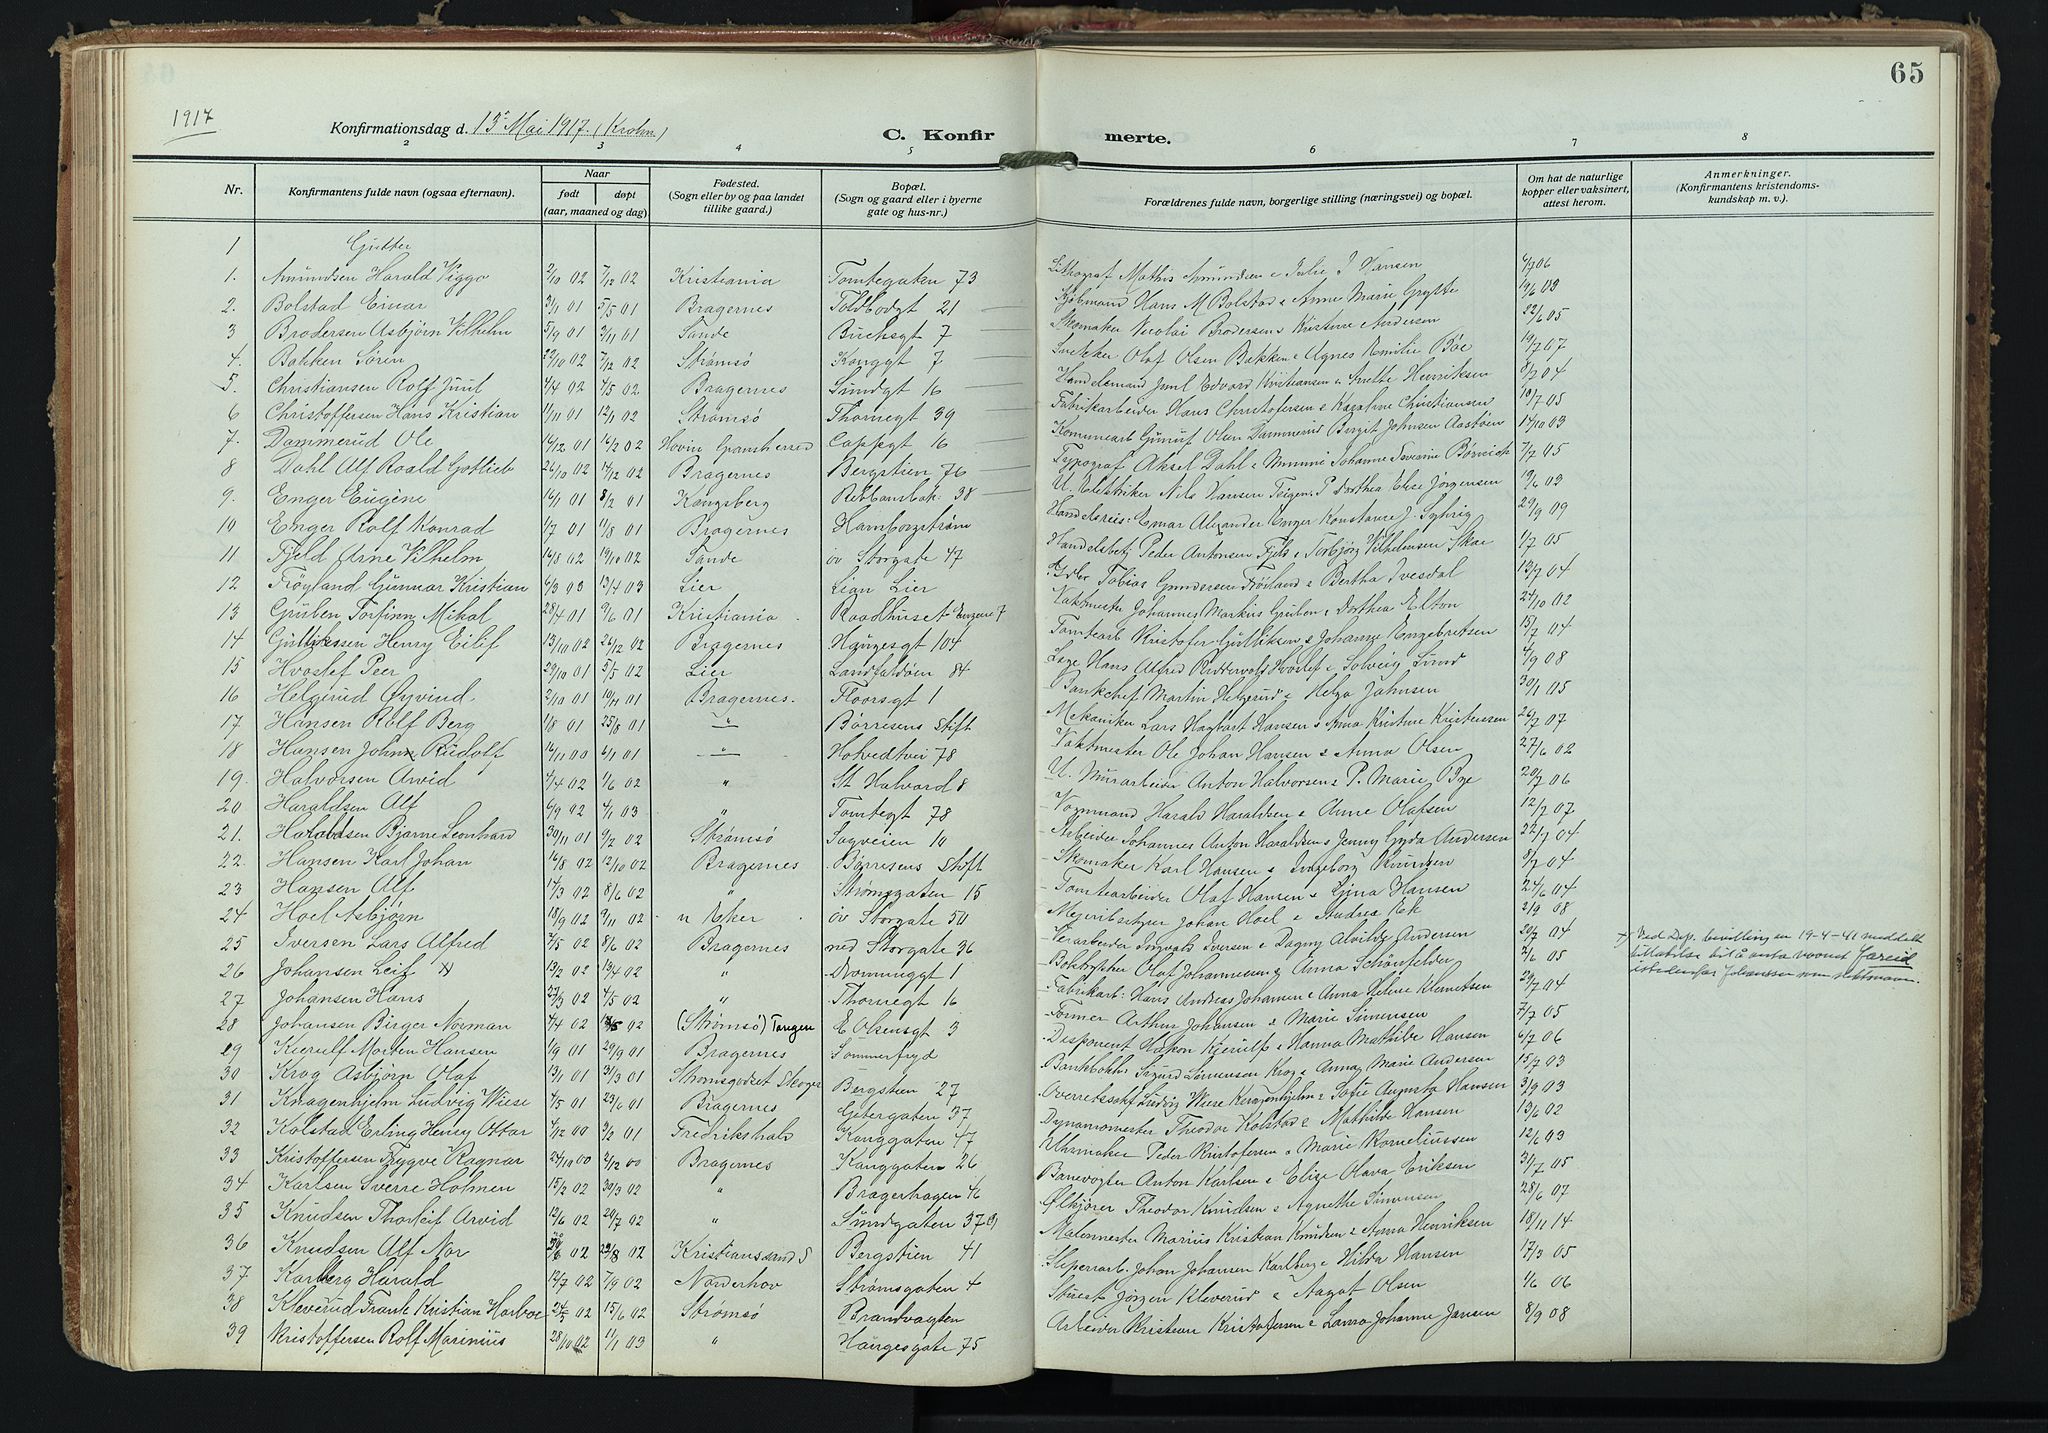 65
1917
Konfirmationsdag d. 13de Mai 1917. (Krohn)
C. Konfirmerte.
2 3 4 5 6 7 8
Nr. Konfirmantens fulde navn (ogsaa efternavn). Naar født døpt (aar, maaned og dag) Fødested. (Sogn eller by og paa landet tillike gaard.) Bopæl. (Sogn og gaard eller i byerne gate og hus-nr.) Forældrenes fulde navn, borgerlige stilling (næringsvei) og bopæl. Om hat de naturlige kopper eller vaksinert, attest herom. Anmerkninger. (Konfirmantens kristendomskundskap m. v.).
1 Gutter
1. Amundsen Harald Viggo 2/10 02 7/12 02 Kristiania Tomtegaten 73 Lithograf Mathis Amundsen & Julie J Hansen
2. Bolstad Einar 3/1 01 5/5 01 Bragernes Toldbodgt 21 Kjøbmand Hans M Bolstad & Anne Marie Grytte
3 Brodersen Asbjørn Vilhelm 5/9 01 3/11 01 Sande Buchsgt 7 Skomaker Nicolai Brodersen & Kristine Andersen 22/6 05
4. Bakken Søren 22/10 02 7/12 02 Strømsø Konggt 7 Snekker Olaf Olsen Bakken & Agnes Emilie Bøe 19/7 07
5. Christiansen Rolf Juul 4/4 02 4/5 02 Bragernes Sundgt 16 Handelsmand Juul Edvard Kristiansen & Anette Henriksen 8/7 04
6 Christoffersen Hans Kristian 11/11 01 12/1 02 Strømsø Thornegt 39 Fabrikarbeider Hans Christofersen & Karahne Christiansen 10/7 05
7. Dammerud Ole 14/12 01 16/2 02 Hovin Gransherred Cappgt 16 Kommunearb Gunuf Olsen Dammerud Birgit Johnsen Aastøen 14/10 03
8 Dahl Alf Roald Gotlieb 26/10 02 14/12 02 Bragernes Bergstien 76 Typograf Aksel Dahl & Minni Johanne Severine Børnich 7/7 05
9. Enger Eugéne 16/1 01 8/2 01 Kongsberg Ribbansbak: 38 U. Elektriker Nils Hansen Teigen. P Dorthea Elise Jørgensen 19/6 03
10 Enger Rolf Konrad 1/7 01 11/8 01 Bragernes Hamborgstrøm Handelsreis: Einar Alexander Enger Konstance J. Syhrig 29/9 09
11 Fjeld Arne Vilhelm 16/8 02 19/10 02 Sande öv Storgate 47 Handelsbetj Peder Antonsen Fjeld & Torbjørg Vilhelmsen Skar 1/7 05
12 Frøyland Gunnar Kristian 6/3 03 13/4 03 Lier Lian Lier Tobias Gundersen Frøiland & Bertha Ivesdal 13/7 04
13 Gruben Torfinn Mikal 28/4 01 9/6 01 Kristiania Raadhuset Engene 7 Vaktmester Johannes Markus Gruben & Dorthea Elton 24/10 02
14 Gulliksen Henry Eilif 13/10 02 26/12 02 Bragernes Haugesgt 104 Tomtearb Kristofer Gulliksen & Johanne Engebretsen 15/7 04
15 Hvoslef Peer 29/10 01 5/5 02 Lier Landfaldøen 84 Læge Hans Alfred Ridderwold Hvoslef & Solveig Lund 4/9 08
16 Helgerud Øyvind 2/10 01 10/11 01 Bragernes. Floorsgt 1 Bankchef Martin Helgerud & Helga Johnsen 30/1 05
17 Hansen Rolf Berg 1/8 01 25/8 01 " Børresens Stift Mekaniker Lars Hagbart Hansen & Anna Kristine Kristensen 26/7 07
18 Hansen Johan Rudolf 16/11 00 6/1 01 " Hotvedtvei 78 Vaktmester Ole Johan Hansen & Anna Olsen 27/6 02
19. Halvorsen Arvid 4/4 02 1/6 02 " St Halvard 8 U. Murarbeider Anton Halvorsen & P. Marie Bye 20/7 06
20 Haraldsen Alf 6/9 02 4/1 03 " Tomtegt 78 Vognmand Harald Haraldsen & Anne Olafsen 12/7 07
21. Haraldsen Bjarne Leonhard 30/11 01 9/2 02 Strømsø Sagveien 10 Arbeider Johannes Anton Haraldsen & Jenny Gyda Andersen 22/7 04
22. Hansen Karl Johan 16/8 02 12/10 02 Bragernes Børresens Stift Skomaker Karl Hansen & Ingeborg Knudsen 8/7 04
23 Hansen Alf 14/3 02 8/6 02 " Strømsgaten 15 Tomtearbeider Olaf Hansen & Lina Hansen 24/6 04
24 Hoel Asbjørn 18/9 02 9/11 02 n Eker öv Storgate 50 Meieribestyrer Johan Hoel & Andrea Ek 2/9 08
25 Iversen Lars Alfred 7/5 02 8/6 02 Bragernes ned Storgate 36 Verarbeider Ingvald Iversen & Dagny Alvilde Andersen 20/7 04
26 Johansen Leif x 13/2 02 13/4 02 " Dronninggt 1 Boktrykker Olaf Johannesen & Anna Schönfelder 2/6 05
x Ved Dep. bevilling av 19-4-41 meddelt
tillatelse til å anta navnet Jareid
istedenfor Johansen som slektsnavn.
27 Johansen Hans 27/3 02 4/5 02 " Thornegt 16 Fabrikarb: Hans Andreas Johansen & Anna Helene Klemetsen 29/7 04
28 Johansen Birger Norman 4/4 02 02 (Strømsø) Tangen E Olsensgt 3 Former Arthur Johansen & Marie Simensen 7/7 05
29 Kierulf Morten Hansen 1/9 01 29/9 01 Bragernes Sommerfryd Disponent Hakon Kjerulf & Hanna Mathilde Hansen 6/7 06
30 Krog Asbjørn Olaf 13/1 01 31/3 01 Strømsgodset Skoger Bergstien 27 Bankbokh: Sigurd Simensen Krog & Anna Marie Andersen 15/7 03
31 Knagenhjelm Ludvig Wiese 4/5 01 23/6 01 Bragernes Getergaten 37 Overretssakf Ludvig Wiese Knagenhjelm & Sofie Augusta Hansen 3/9 03
32 Kolstad Erling Henry Ottar 4/12 00 3/2 01 Fredrikshald Konggaten 47 Dynamomester Theodor Kolstad & Mathilde Hansen 13/6 02
33 Kristoffersen Trygve Ragnar 24/10 00 2/12 00 Bragernes Konggaten 26 Uhrmaker Peder Kristofersen & Marie Korneliussen 12/6 03
34 Karlsen Sverre Holmen 15/2 02 30/3 02 " Bragerhagen 46 Banevogter Anton Karlsen & Elise Olava Eriksen 31/7 05
35 Knudsen Thorleif Arvid 12/6 02 20/7 02 " Sundgaten 37 Ølkjører Theodor Knudsen & Agnethe Simensen 28/6 07
36 Knudsen Alf Nor 02 23/8 02 Kristianssand S Bergstien 41 Malermester Marius Kristian Knudsen & Anna Henriksen 18/11 14
37 Karlberg Harald 14/7 02 7/9 02 Norderhov Strømsgaten 4 Sliperarb. Johan Johansen Karlberg & Hilda Hansen 17/3 05
38 Kleverud Frank Kristian Harboe 24/5 02 15/6 02 Strømsø Brandvagten Stuert Jørgen Kleverud & Aagot Olsen 4/6 06
39 Kristoffersen Rolf Marinius 28/10 02 11/1 03 " Haugesgate 75 Arbeider Kristian Kristofersen & Laura Johanne Jansen 8/9 08